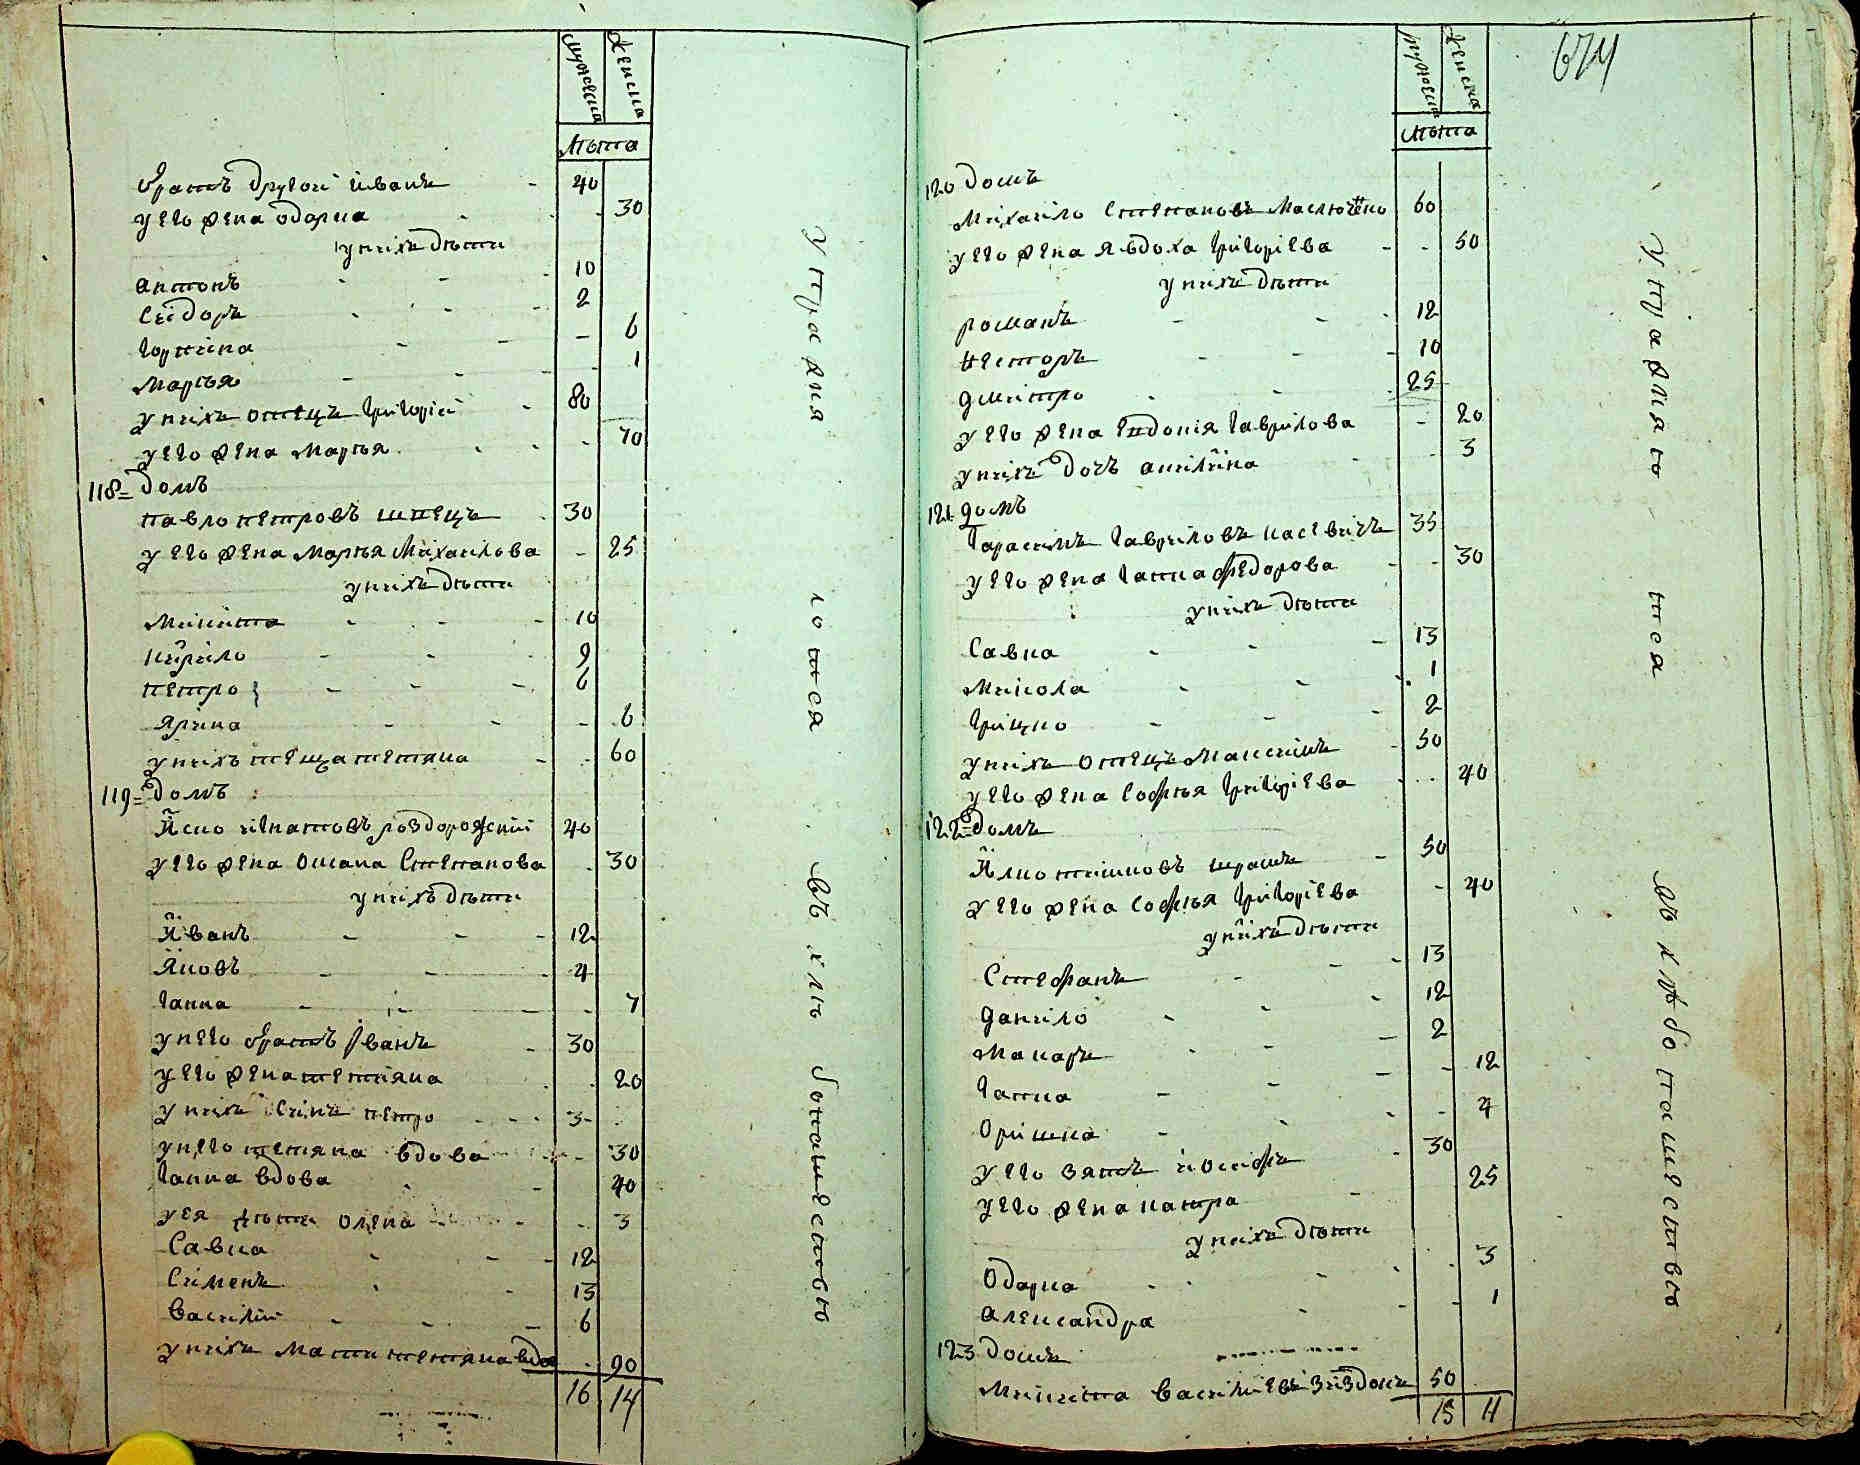 мужеска
женска
лѣта
братъ другой иванъ - 40
у его жена одарка - 30
у нихъ дѣти
антонъ - 10
Сидоръ - 2
горпина - 6
марья - 1
у нихъ отецъ григорій - 80
у его жена марья - 70
118 = домъ
павло петровъ швецъ - 30
у его жена марья михаилова - 25
у нихъ дѣти
микита - 10
кирило - 9
петро - 6
ярина - 6
у нихъ теща тетяна - 60
119 = домъ
Яско игнатовъ роздорожскій - 40
у его жена оксана Степанова - 30
у нихъ дѣти
Иванъ - 12
Яковъ - 4
ганна - 7
у него братъ Иванъ - 30
у его жена тетяна - 20
у нихъ синъ петро - 3
у него тетяна вдова - 30
ганна вдова - 40
у ея дѣти олена - 3
Савка - 12
Сименъ - 13
василій - 6
у нихъ мати тетяна вдова - 90
16 14
Упражня
ются
въ хлѣ
бопашествѣ
674
мужеска
женска
лѣта
120 домъ
михаило Степановъ маслюченко 60
у его жена явдоха григоріева - 50
у нихъ дѣти
романъ - 12
несторъ - 10
дмитро - 25
у его жена евдокія гаврилова - 20
у нихъ дочь акилина - 3
121 домъ
гарасимъ гавриловъ касевичъ 35
у его жена ганна федорова - 30
у нихъ дѣти
Савка - 13
микола - 1
грицко - 2
у нихъ отецъ максимъ - 50
у его жена софья григоріева - 40
122 = домъ
Яско тишковъ - 50
у его жена софья григоріева - 40
у нихъ дѣти
Стефанъ - 13
данило - 12
макаръ - 2
ганна - 12
оришка - 4
у его зять иосифъ - 30
у его жена катра - 25
у нихъ дѣти
одарка - 3
александра - 1
123 домъ
микита василіевъ 50
15 11
Упражняю
тся
въ хлѣбопашествѣ